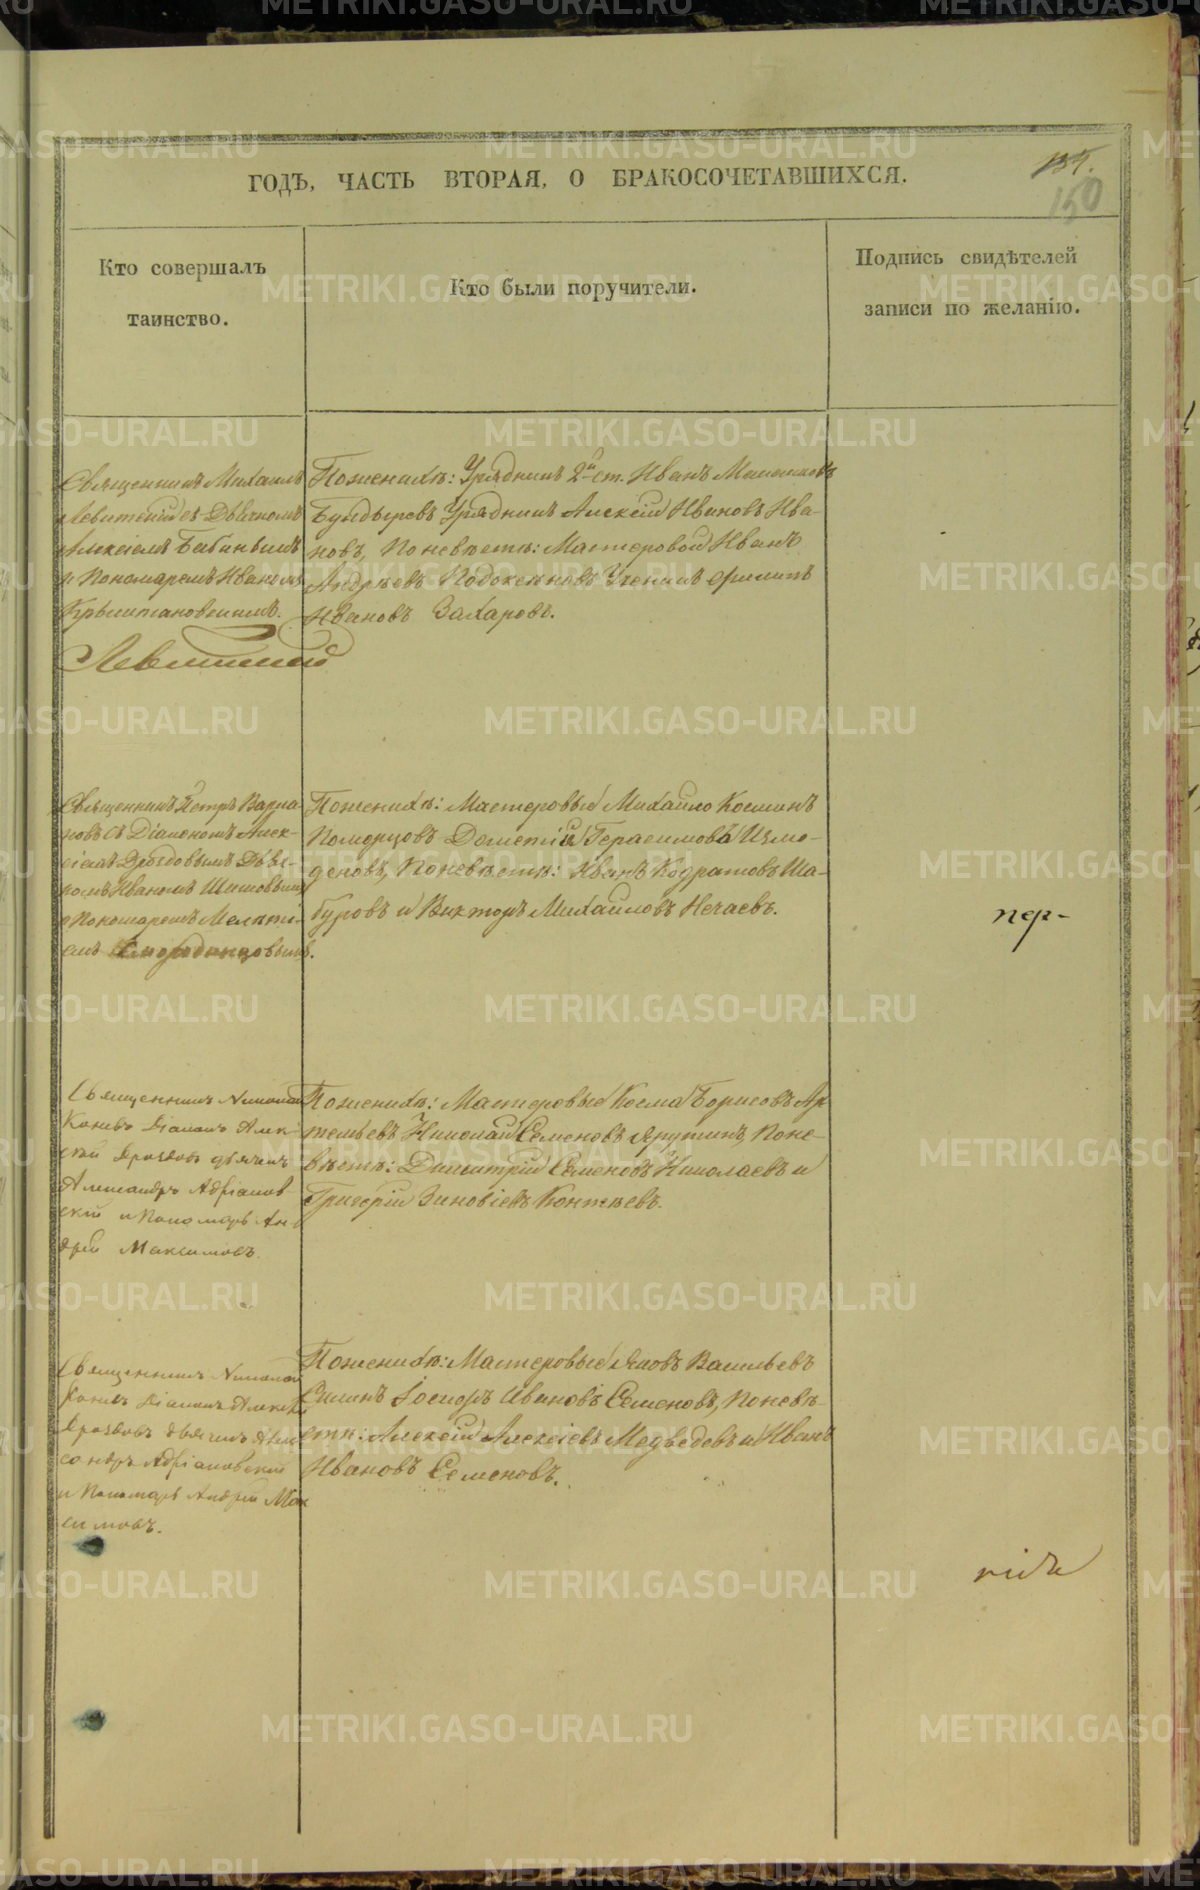 ГОДЪ, ЧАСТЬ ВТОРАЯ, О БРАКОСОЧЕТАВШИХСЯ.
150
Кто совершалъ
таинство.
Кто были поручители.
Подпись свидѣтелей
записи по желанію.
Священникъ Михаилъ
Левитскій съ Дьячкомъ
Алексѣемъ Бабинымъ
и Пономаремъ Иваномъ
Левитскій
Поженихѣ: Урядникъ 2й ст. Иванъ
Булдыревъ Урядникъ Алексій Ивановъ Ива-
новъ, Поневѣстѣ: Мастеровой Иванъ
Андреевъ Ученикъ Филипъ
Ивановъ Захаровъ.
Священникъ Петръ Варла-
мовъ съ Діакономъ Алек-
сіемъ Дроздовымъ Дьяч-
комъ Иваномъ Шишовымъ
и Пономаремъ
Смородинцовымъ.
Поженихѣ: Мастеровые Михайло Косминъ
Поморцовъ Дометій Герасимовъ Измо-
деновъ, Поневѣстѣ: Иванъ Кодратовъ Ша-
буровъ и Викторъ Михайловъ Нечаевъ.
пер-
Священникъ Николай
Діаконъ Алек-
сей Дроздовъ дьячекъ
Александръ Адріанов
скій и Пономарь Ан-
дрей Максимовъ.
Поженихѣ: Мастеровые Косма Борисовъ Ар
темьевъ Николай Семеновъ Ярутинъ, Поне-
вѣстѣ: Димитрій Семеновъ Николаевъ и
Григорій Зиновіевъ Контѣевъ.
Священникъ Николай
Діаконъ Алексѣй
Дроздовъ дьячекъ Алек
сандръ Адріановскій
и Пономарь Андрей Мак
симовъ.
Поженихѣ: Мастеровые Яковъ Васильевъ
Силинъ Іосифъ Ивановъ Семеновъ, Поневѣ-
стѣ: Алексій Алексіевъ Медведевъ и Иванъ
Ивановъ Семеновъ.
METRIKI.GASO-URAL.RU